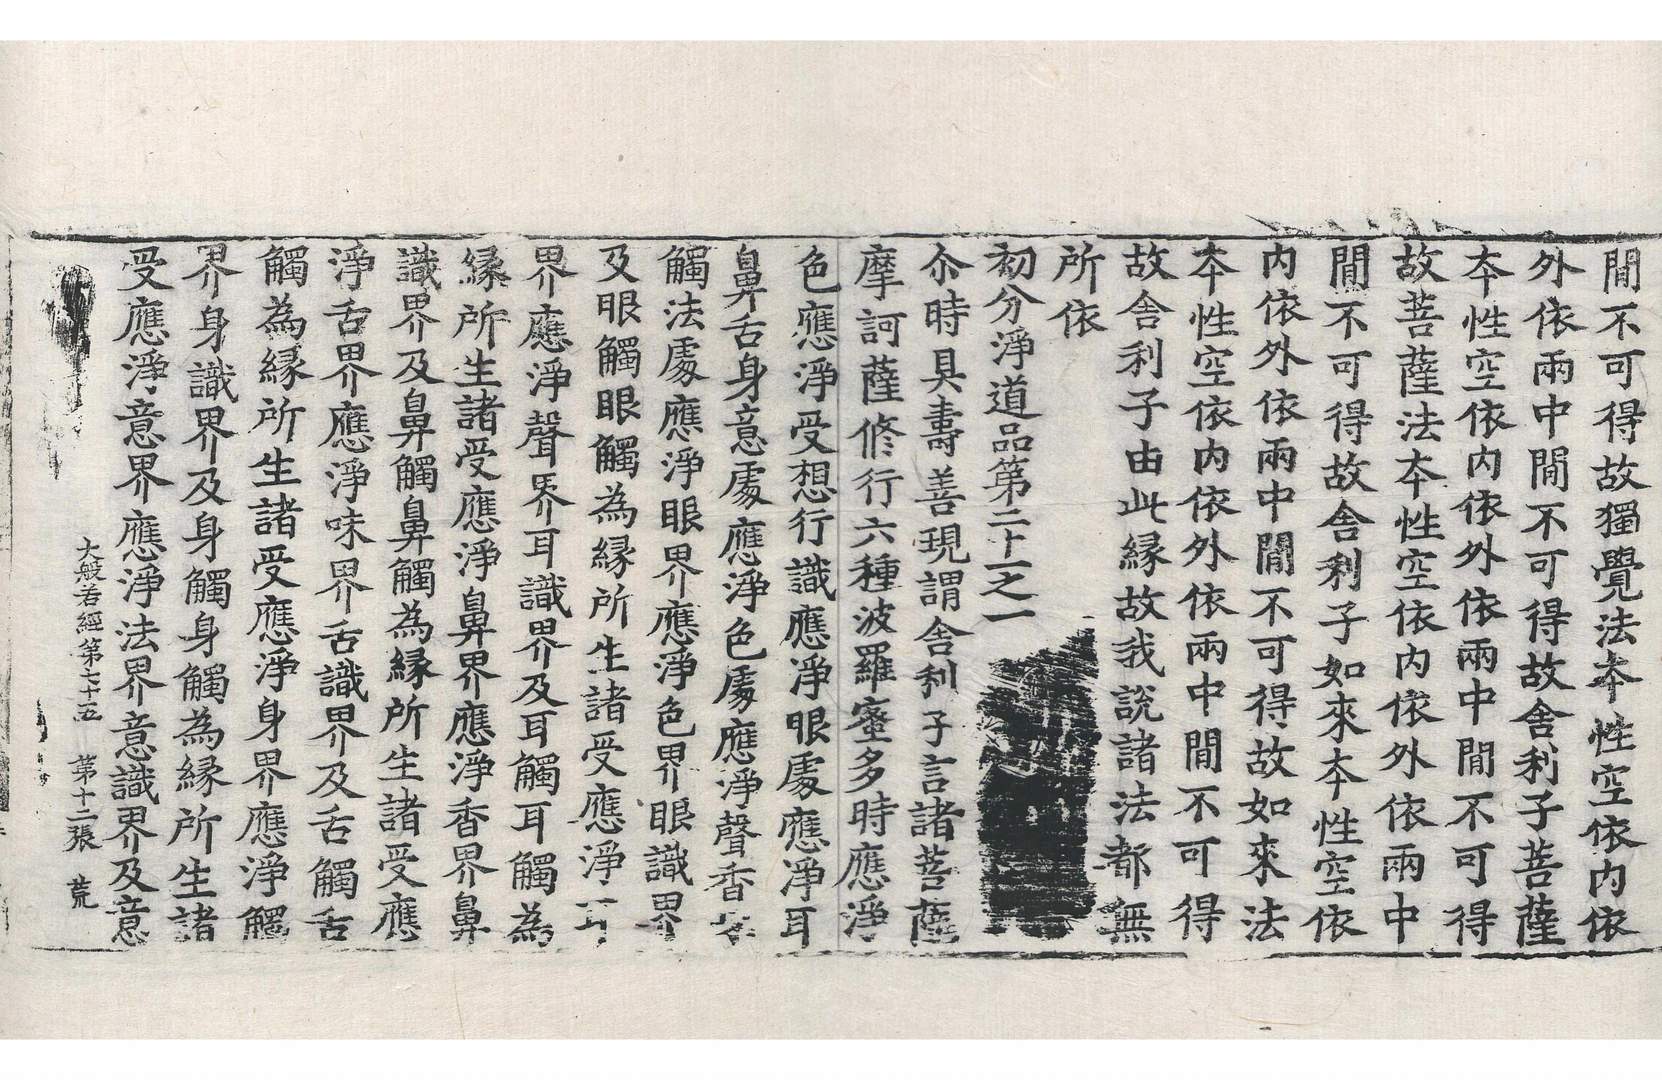 間不可得故獨覺法夲性空依内依
外依兩中間不可得故舍利子菩薩
夲性空依内依外依兩中間不可得
故菩薩法夲性空依内依外依兩中
間不可得故舍利子如來夲性空依
内依外依兩中間不可得故如來法
夲性空依内依外依兩中間不可得
故舍利子由此緣故我說諸法都無
所依
初分淨道品第二十一之一
尒時具壽善現謂舍利子言諸菩薩
摩訶薩修行六種波羅蜜多時應淨
色應淨受想行識應淨眼處應淨耳
鼻舌身意處應淨色處應淨聲香味
觸法處應淨眼界應淨色界眼識界
及眼觸眼觸為緣所生諸受應淨耳
界應淨聲界耳識界及耳觸耳觸為
緣所生諸受應淨鼻界應淨香界鼻
識界及鼻觸鼻觸為緣所生諸受應
淨舌界應淨味界舌識界及舌觸舌
觸為緣所生諸受應淨身界應淨觸
界身識界及身觸身觸為緣所生諸
受應淨意界應淨法界意識界及意
大般若經第七十五　第十二張　荒